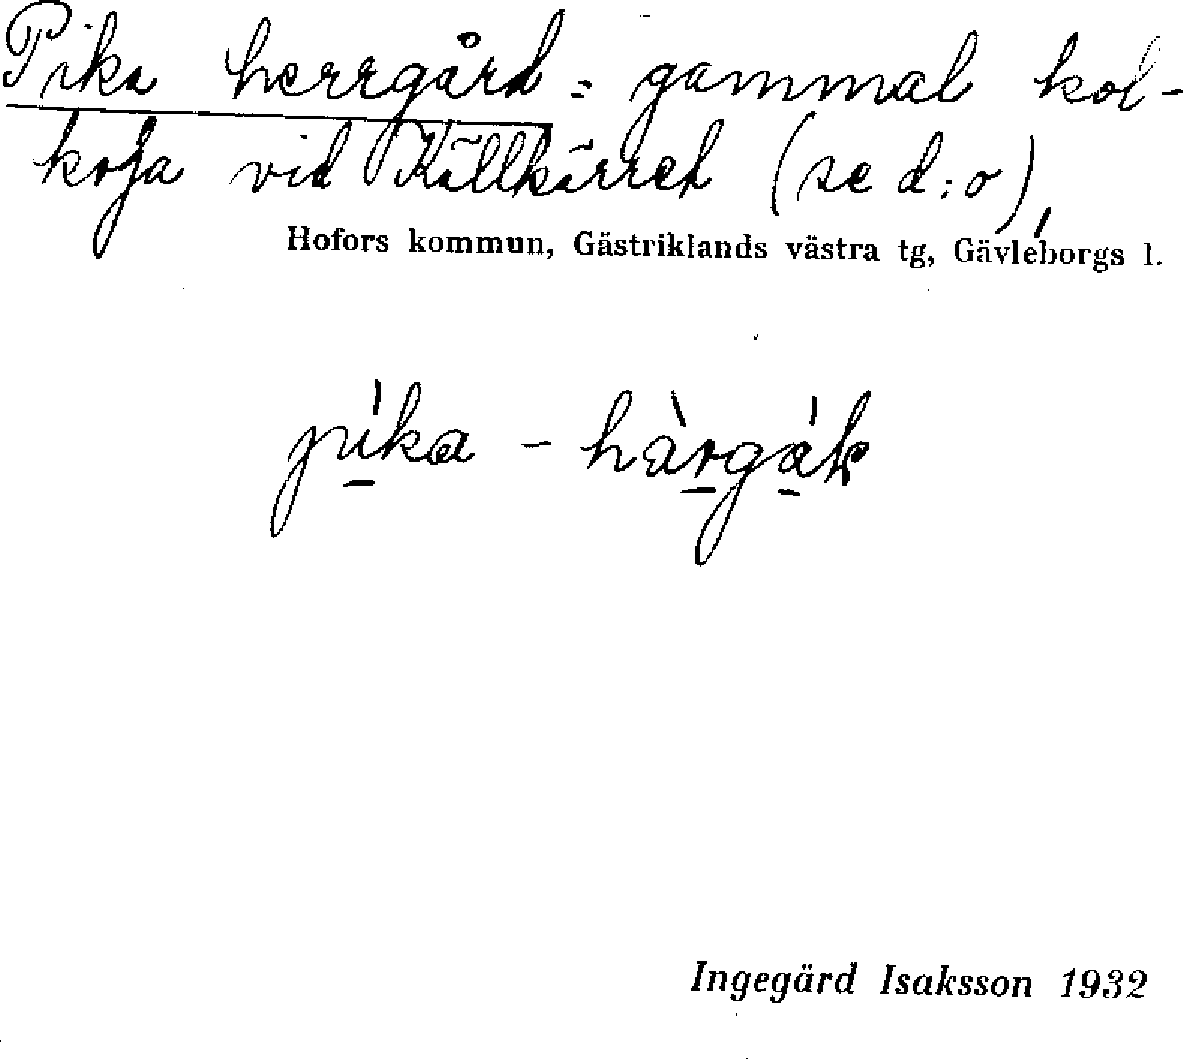 Pika herrgård = gammal kol-
koja vid Källkärret (se d:o),
Hofors kommun, Gästriklands västra tg, Gävleborgs l.
Ingegärd Isaksson 1932